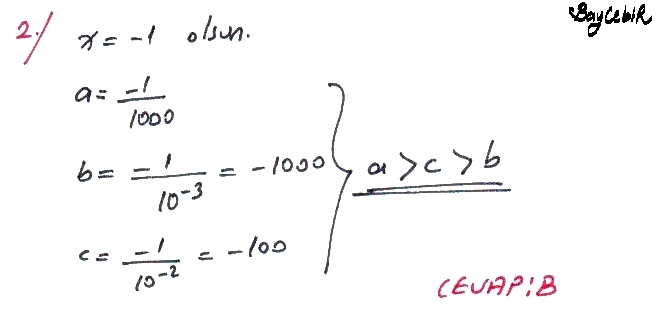 BayCebiR
2./ x = -1 olsun.
a = -1/1000
b = -1/10^-3 = -1000
a > c > b
c = -1/10^-2 = -100
CEVAP: B